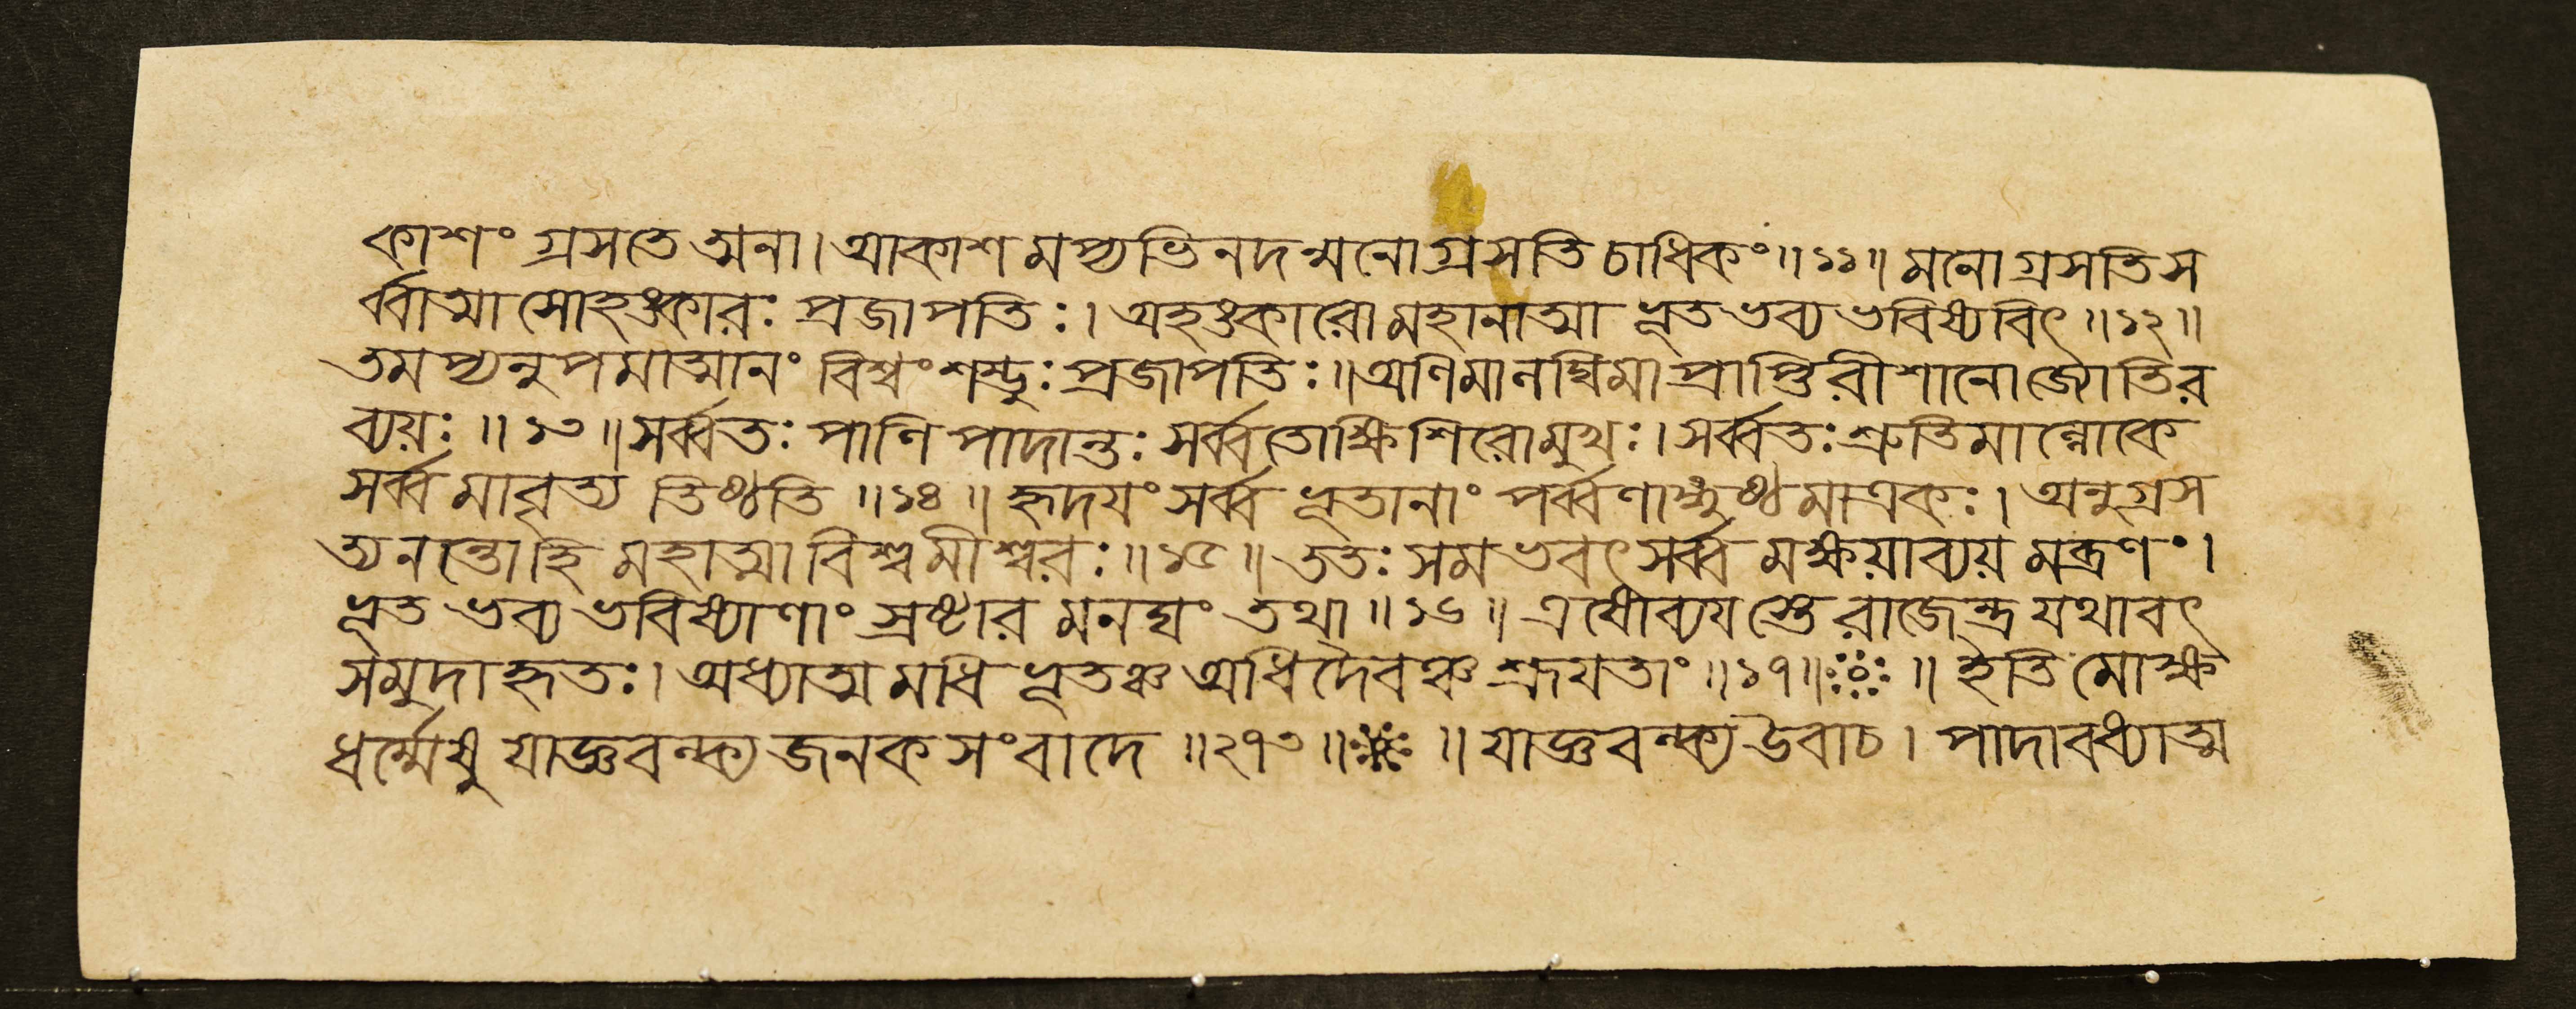 কাশং গ্রসতে ত্মনা। আকাশমপ্যভিনদন্মনো গ্রসতি চাধিকং॥১১॥ মনো গ্রসতি স
র্ব্বাত্মা সোহঙ্কারঃ প্রজাপতিঃ। অহঙ্কারো মহানাত্মা ভূতভব্যভবিষ্যবিৎ॥১২॥
তমপ্যনুপমাত্মানং বিশ্বং শম্ভুঃ প্রজাপতিঃ॥ অণিমা লঘিমা প্রাপ্তিরীশানো জ্যোতির
ব্যয়ঃ॥১৩॥ সর্ব্বতঃ পাণিপাদান্তঃ সর্ব্বতোক্ষিশিরোমুখঃ। সর্ব্বতঃ শ্রুতিমাল্লোকে
সর্ব্বমাবৃত্য তিষ্ঠতি॥১৪॥ হৃদয়ং সর্ব্বভূতানাং পর্ব্বণাঙ্গুষ্ঠমাত্রকঃ। অনুগ্রস
ত্যনন্তো হি মহাত্মা বিশ্বমীশ্বরঃ॥১৫॥ ততঃ সমভবৎ সর্ব্বমক্ষয়াব্যয়মব্রণং।
ভূতভব্যভবিষ্যাণাং স্রষ্টারমনঘং তথা॥১৬॥ এষোব্যযস্তে রাজেন্দ্র যথাবৎ
সমুদাহৃতঃ। অধ্যাত্মমধিভূতঞ্চ অধিদৈবঞ্চ শ্রূযতাং॥১৭॥ ॥ ইতি মোক্ষ
ধর্ম্মেষু যাজ্ঞবল্ক্যজনকসংবাদে॥২৭৩॥ ॥ যাজ্ঞবল্ক্য উবাচ। পাদাবধ্যাত্ম